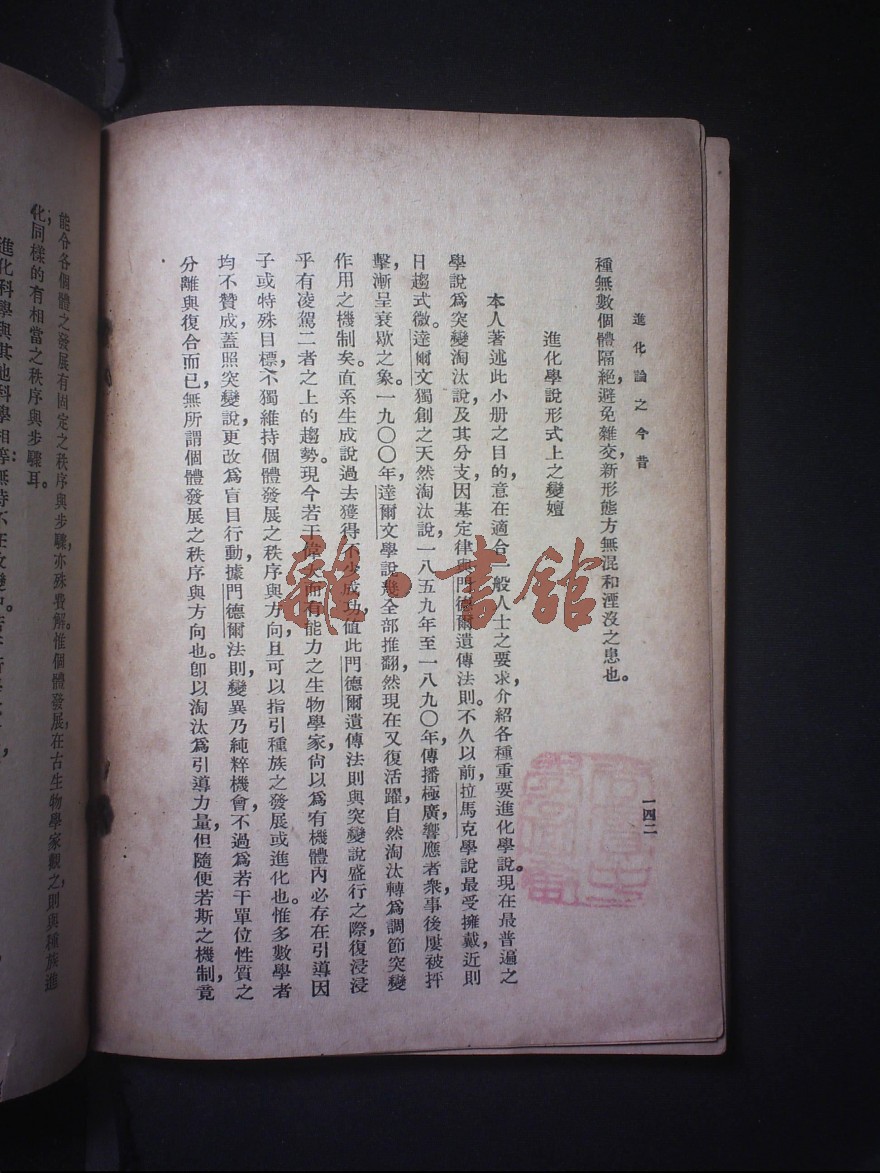 進化論之今昔
一四二
種無數個體隔絕，避免雜交，新形態方無混和湮沒之患也。
進化學說形式上之變嬗
本人著述此小册之目的，意在適合一般人士之要求，介紹各種重要進化學說。現在最普遍之
學說爲突變淘汰說，及其分支，因基定律與門德爾遺傳法則。不久以前，拉馬克學說最受擁戴，近則
日趨式微。達爾文獨創之天然淘汰說，一八五九年至一八九〇年，傳播極廣，響應者衆，事後屢被抨
擊，漸呈衰歇之象。一九〇〇年，達爾文學說幾全部推翻，然現在又復活躍，自然淘汰轉爲調節突變
作用之機制矣。直系生成說過去獲得不少成功，值此門德爾遺傳法則與突變說盛行之際，復浸浸
乎有凌駕二者之上的趨勢。現今若干偉大而有能力之生物學家，尙以爲有機體內必存在引導因
子或特殊目標，不獨維持個體發展之秩序與方向，且可以指引種族之發展或進化也。惟多數學者
均不贊成，蓋照突變說，更改爲盲目行動，據門德爾法則，變異乃純粹機會，不過爲若干單位性質之
分離與復合而已，無所謂個體發展之秩序與方向也。卽以淘汰爲引導力量，但隨便若斯之機制，竟
能令各個體之發展有固定之秩序與步驟，亦殊費解。惟個體發展在古生物學家觀之，則與種族進
化同樣的有相當之秩序與步驟耳。
進化科學與其他科學相等，無時不在改變中。
雜·書館